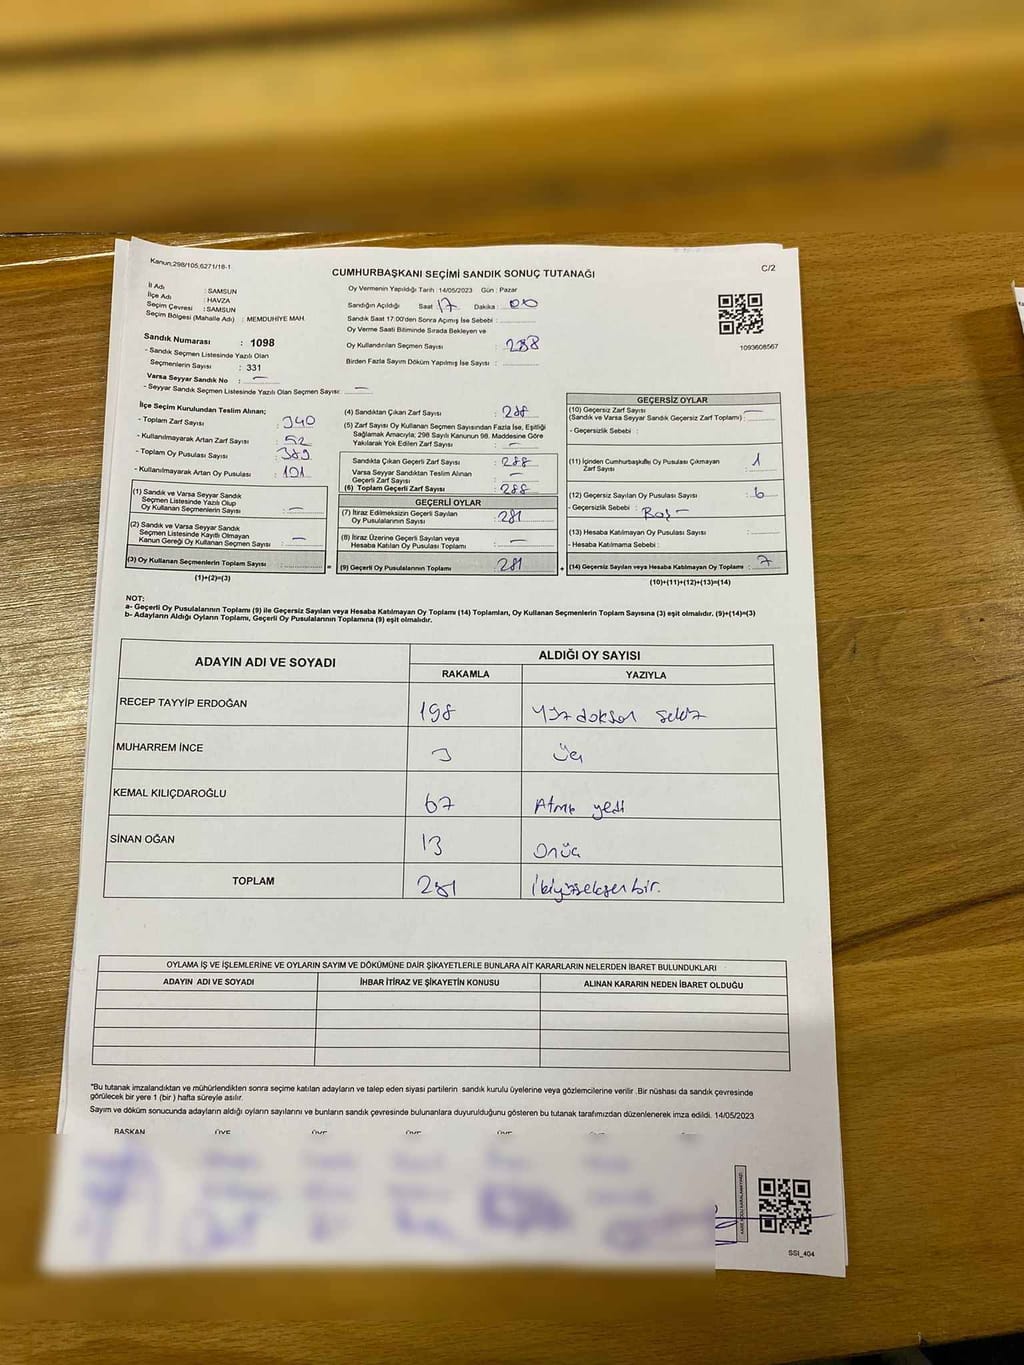 Kanun:298/105,6271/18-1
CUMHURBAŞKANI SEÇİMİ SANDIK SONUÇ TUTANAĞI
C/2
İl Adı : SAMSUN
İlçe Adı : HAVZA
Seçim Çevresi : SAMSUN
Seçim Bölgesi (Mahalle Adı) : MEMDUHİYE MAH.
Sandık Numarası : 1098
- Sandık Seçmen Listesinde Yazılı Olan
Seçmenlerin Sayısı : 331
Varsa Seyyar Sandık No : —
- Seyyar Sandık Seçmen Listesinde Yazılı Olan Seçmen Sayısı: —
Oy Vermenin Yapıldığı Tarih :14/05/2023 Gün : Pazar
Sandığın Açıldığı Saat 17 Dakika : 00
Sandık Saat 17:00'den Sonra Açılmış İse Sebebi :
Oy Verme Saati Bitiminde Sırada Bekleyen ve
Oy Kullandırılan Seçmen Sayısı : 288
Birden Fazla Sayım Döküm Yapılmış İse Sayısı :
1093608567
İlçe Seçim Kurulundan Teslim Alınan;
- Toplam Zarf Sayısı : 340
- Kullanılmayarak Artan Zarf Sayısı : 52
- Toplam Oy Pusulası Sayısı : 389
- Kullanılmayarak Artan Oy Pusulası : 101
(1) Sandık ve Varsa Seyyar Sandık
Seçmen Listesinde Yazılı Olup
Oy Kullanan Seçmenlerin Sayısı : —
(2) Sandık ve Varsa Seyyar Sandık
Seçmen Listesinde Kayıtlı Olmayan
Kanun Gereği Oy Kullanan Seçmen Sayısı : —
(3) Oy Kullanan Seçmenlerin Toplam Sayısı : =
(1)+(2)=(3)
(4) Sandıktan Çıkan Zarf Sayısı : 288
(5) Zarf Sayısı Oy Kullanan Seçmen Sayısından Fazla İse, Eşitliği
Sağlamak Amacıyla; 298 Sayılı Kanunun 98. Maddesine Göre
Yakılarak Yok Edilen Zarf Sayısı : —
Sandıkta Çıkan Geçerli Zarf Sayısı : 288
Varsa Seyyar Sandıktan Teslim Alınan
Geçerli Zarf Sayısı : —
(6) Toplam Geçerli Zarf Sayısı : 288
GEÇERLİ OYLAR
(7) İtiraz Edilmeksizin Geçerli Sayılan
Oy Pusulalarının Sayısı : 281
(8) İtiraz Üzerine Geçerli Sayılan veya
Hesaba Katılan Oy Pusulası Toplamı : —
(9) Geçerli Oy Pusulalarının Toplamı : 281 +
GEÇERSİZ OYLAR
(10) Geçersiz Zarf Sayısı
(Sandık ve Varsa Seyyar Sandık Geçersiz Zarf Toplamı) : —
- Geçersizlik Sebebi :
(11) İçinden Cumhurbaşkanı Oy Pusulası Çıkmayan
Zarf Sayısı : 1
(12) Geçersiz Sayılan Oy Pusulası Sayısı : 6
- Geçersizlik Sebebi :
(13) Hesaba Katılmayan Oy Pusulası Sayısı :
- Hesaba Katılmama Sebebi :
(14) Geçersiz Sayılan veya Hesaba Katılmayan Oy Toplamı : 7
(10)+(11)+(12)+(13)=(14)
NOT:
a- Geçerli Oy Pusulalarının Toplamı (9) ile Geçersiz Sayılan veya Hesaba Katılmayan Oy Toplamı (14) Toplamları, Oy Kullanan Seçmenlerin Toplam Sayısına (3) eşit olmalıdır. (9)+(14)=(3)
b- Adayların Aldığı Oyların Toplamı, Geçerli Oy Pusulalarının Toplamına (9) eşit olmalıdır.
ADAYIN ADI VE SOYADI
ALDIĞI OY SAYISI
RAKAMLA YAZIYLA
RECEP TAYYİP ERDOĞAN 198 Yüzdoksan sekiz
MUHARREM İNCE 3 Üç
KEMAL KILIÇDAROĞLU 67 Atmış yedi
SİNAN OĞAN 13 Onüç
TOPLAM 281 İkiyüzseksenbir.
OYLAMA İŞ VE İŞLEMLERİNE VE OYLARIN SAYIM VE DÖKÜMÜNE DAİR ŞİKAYETLERLE BUNLARA AİT KARARLARIN NELERDEN İBARET BULUNDUKLARI
ADAYIN ADI VE SOYADI İHBAR İTİRAZ VE ŞİKAYETİN KONUSU ALINAN KARARIN NEDEN İBARET OLDUĞU
"Bu tutanak imzalandıktan ve mühürlendikten sonra seçime katılan adayların ve talep eden siyasi partilerin sandık kurulu üyelerine veya gözlemcilerine verilir .Bir nüshası da sandık çevresinde
görülecek bir yere 1 (bir ) hafta süreyle asılır.
Sayım ve döküm sonucunda adayların aldığı oyların sayılarını ve bunların sandık çevresinde bulunanlara duyurulduğunu gösteren bu tutanak tarafımızdan düzenlenerek imza edildi. 14/05/2023
BAŞKAN ÜYE ÜYE ÜYE ÜYE ÜYE ÜYE
SSI_404